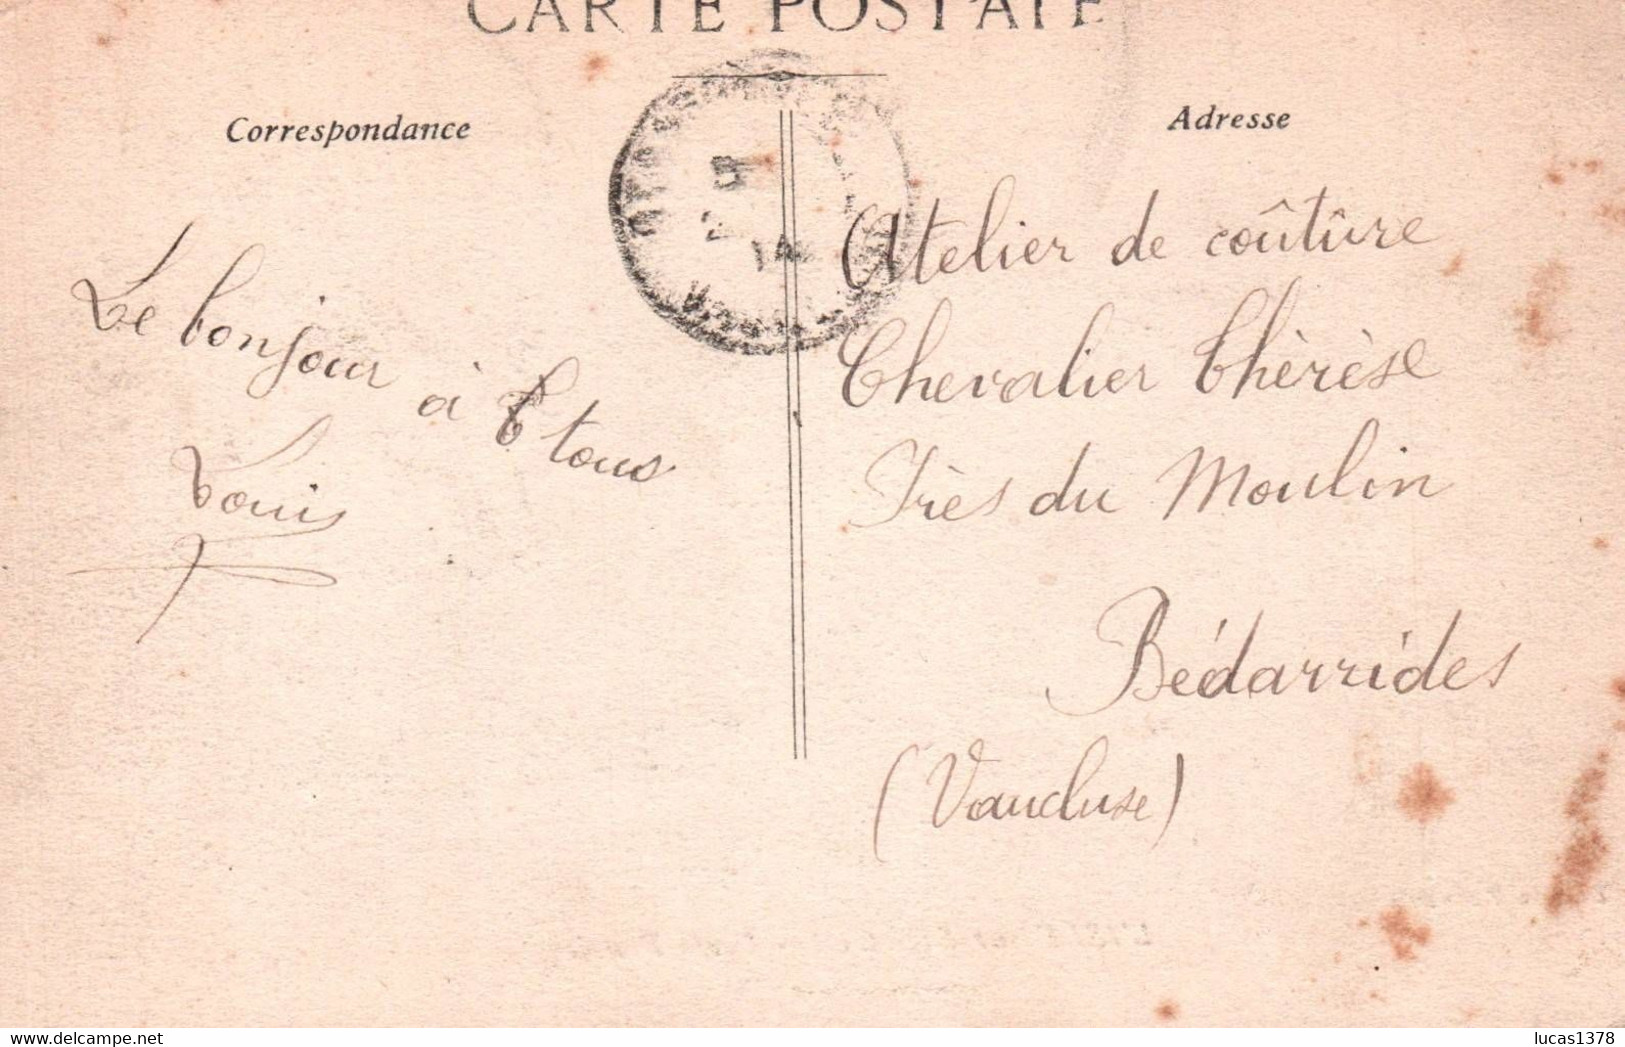 CARTE POSTALE
Correspondance
Adresse
Le bonjour à tous
Louis
Atelier de coûtûre
Chevalier Thèrèse
Près du Moulin
Bédarrides
(Vaucluse)
delcampe.net
lucas1378